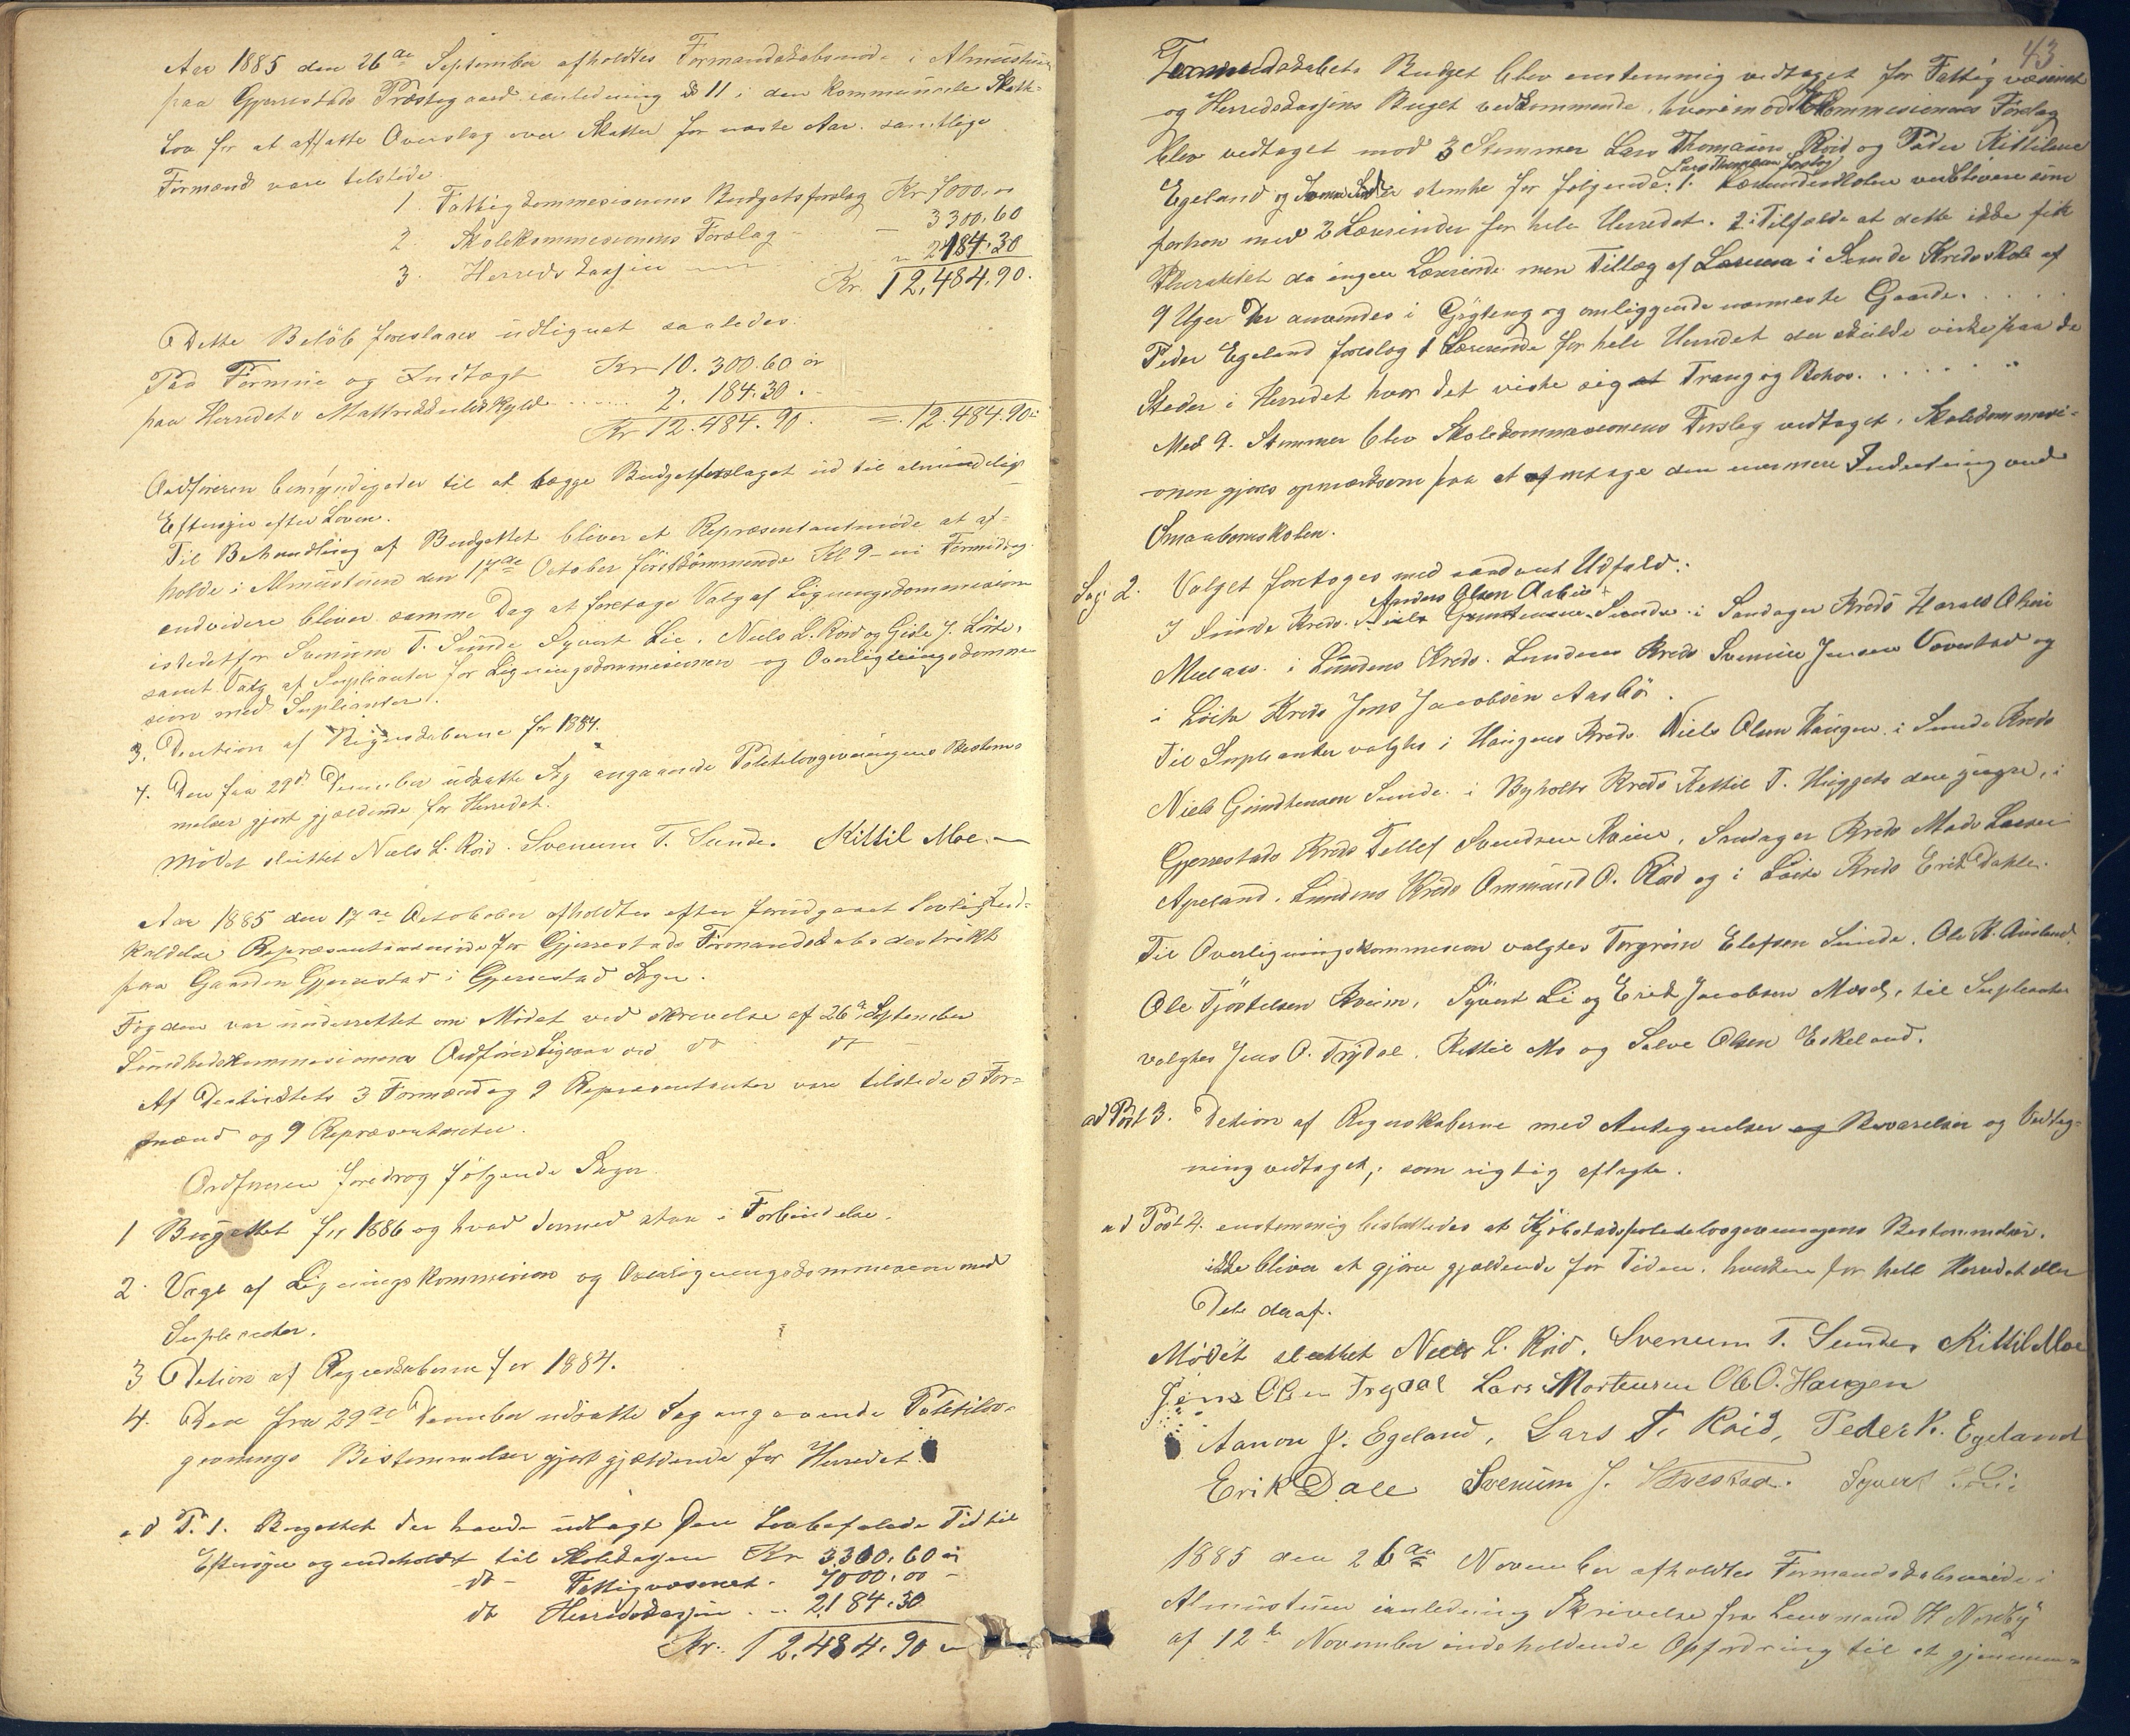 Aar 1885 den 26de September afholdtes Formandskabsmöde i Almustuen
paa Gjerrestads Præstegaard ianledning § 11 i den Kommunale Skatte-
Lov for at affatte Overslag over Skatter for næste Aar. samtlige
Formænd vare tilstede.
1. Fattigkommesionens Budgetsforslag Kr 7000,00
2. Skolekommesionens Forslag - — 3300,60
3. Herredskassen — " 2184,30
Kr. 12,484,90.
Dette Belöb foreslaaes udlignet saaledes:
Paa Formue og Indtægt Kr 10.300.60 ör
paa Herredets Mattrikkulskyld ...... 2.184.30.-
Kr 12.484.90. =. 12.484.90
Ordföreren bemyndigedes til at lægge Budgetforslaget ud til almindelig
Eftersyn efter Loven.
Til Behandling af Budgettet bliver et Repræsentantmöde at af-
holde i Almustuen den 17de October förstkommende Kl 9 - ni Formiddag
endvidere bliver samme Dag at foretage Valg af Ligningskommission
istedetfor Svenum T. Sunde Syvert Lie, Niels L. Röid og Gisle J. Löite,
samt Valg af Suplianter for Ligningskommisionen og Overligningskommi
sion med Suplianter.
3. Decition af Regnskaberne for 1884.
4. Den fra 29de December udsatte Sag angaaende Politilovgivningens Bestem-
melser gjort gjældende for Herredet.
Mödet sluttet Niels L. Röid. Svenum T. Sunde. Kittil Moe. —
Aar 1885 den 17de Octobober afholdtes efter forudgaaet lovlig Ind-
kaldelse Repræsentantmöde for Gjerrestads Formandskabsdestrikt
paa Gaarden Gjerrestad i Gjerrestad Sogn.
Fogden var underrettet om Mödet ved skrivelse af 26de September
Sundhedskommisionens Ordförer Ligesaa ved do do —
Af Destriktets 3 Formænd og 9 Repræsentanter vare tilstede 3 For-
mænd og 9 Repræsentanter.
Ordföreren foredrog fölgende Sager
1 Bugettet for 1886 og hvad dermed staar i Forbindelse.
2. Valg af Ligningskommision og Overligningskommesion med
Suplianter.
3 Decition af Regnskaberne for 1884.
4. Den fra 29de December udsatte Sag angaaende Politilov-
givnings Bistemmelser gjort gjældende for Herredet
ad P. 1. Bugettet der havde udlagt Den Lovbefalede Tid til
Eftersyn og indeholdt til Skolekassen Kr 3.300,60 ör
do - Fattigvæsenet - 7000,00 -
do Herredskassen . - 2184.30
Kr. 12.484.90 "
43
Formandskabets Budget blev enstemmig vedtaget for Fattigvæsenet
og Herredskassens Buget vedkommende, hvorimod Skolkommesionens Forslag
blev vedtaget mod 3 Stemmer Lars Thomasen Röid og Peder Kittilsen
Lars Thomasen forslog
Egeland og stemte for fölgende: 1. verblivere som
forhen med 2 Lærerinder for hele Herredet. 2. i Tilfælde at dette ikke fik
Pluralitet da ingen Lærerinde men Tillæg af i Sunde Kredsskole af
9 Uger Der anvendes i og omliggende nærmeste Gaarde. . . . .
Peder Egeland foreslog 1 Lærerinde for hele Herredet der skulde virke paa de
Steder i Herredet hvor det viste sig at Trang og Behov. . . . . . . "
Med 9. Stemmer blev Skolekommesionens Forslag vedtaget, Skolekommesi-
onen gjöres opmærksom paa at afmetage den nærmere Inddeling ved
Smaabornskolen.
Sag 2. Valget foretoges med saadant Udfald:
Anders Olsen Aabö
I Sunde Kreds. Niels Gundtensen Sunde. i Sandager Kreds Harald Olsen
Melaas. i Lundens Kreds. Lundens Kreds Svenum Jensen Vovestad og
i Löite Kreds Jens Jacobsen Aasbö.
Til Suplianter valgtes i Haugens Kreds Niels Olsen Haugen. i Sunde Kreds
Niels Gundtensen Sunde. i Byholts Kreds Kettil T. Huggets den yngre, i
Gjerrestads Kreds Tellef Svendsen Kveim, Sandager Kreds Mads Larsen
Apeland. Lundens Kreds Ommund O. Röid og i Löite Kreds Erik Dahle.
Til Overligningskommesion valgtes Torgrim Elefsen Sunde. Ole K. Ausland.
Ole Tjöstelsen Kveim, Syvert Li og Erik Jacobsen Mosd, til Suplianter
valgtes Jens O. Trydal. Kittil Mo og Salve Olsen Eskeland.
ad Post 3. Detion af Regnskaberne med Antegnelser og Besvarelser og Vedteg-
ning vedtaget, som rigtig aflagte.
ad Post 4. enstemmig besluttedes at Kjöbstadspolitilovgivningens Bestemmelser.
ikke bliver at gjöre gjældende for Tiden. hverken for hele Herredet eller
Dele deraf.
Mödet sluttet Niels L. Röid. Svenum T. Sunde, Kittil Moe
Jens Olsen Trydal Lars Mortensen Ole O. Haugen
Aanon J. Egeland, Lars T. Röid, Peder K. Egeland
Erik Dale Svenum J. Vovestad. Syvert Li
1885 den 26de November afholdtes Formandskabsmöde i
Almustuen ianledning Skrivelse fra Lensmand H Nordby
af 12te November indeholdende Opfordring til at gjennem-